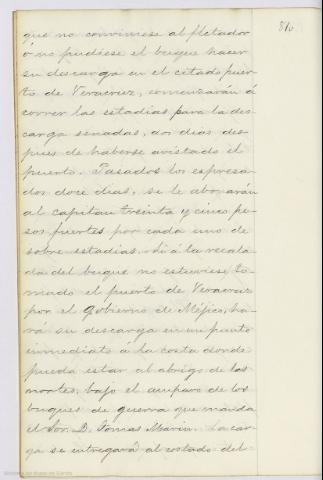 que no conviniese al fletador
ó no pudiese el buque hacer
su descarga en el citado puer-
to de Veracruz, comenzarán á
correr las estadias para la des-
carga señadas, dos dias des-
pues de haberse avistado el
puerto. Pasados los espresa-
dos doce dias, se le abonarán
al capitan treinta y cinco pe-
sos fuertes por cada uno de
sobre estadias. Si á la recala-
da del buque no estuviese to-
mado el puerto de Veracruz
por el Gobierno de Méjico, ha-
rá su descarga en un punto
inmediato á la costa donde
pueda estar al abrigo de los
nortes, bajo el amparo de los
buques de guerra que manda
el Sor. D. Tomas Marin. La car-
ga se entregará al costado del